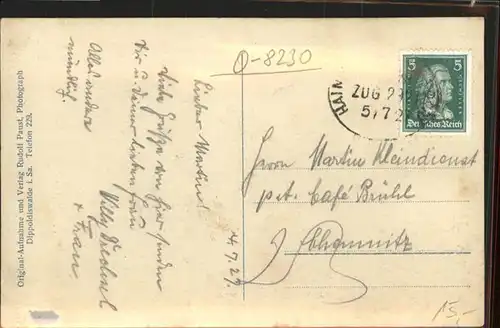 O-8230
Lieber Martin!
Viele Grüße von hier senden
Dir u. Deiner lieben Frau
Willy
+ Frau.
Alles andere
mündlich.
4.7.27.
Original-Aufnahme und Verlag Rudolf Paust, Photograph
Dippoldiswalde i. Sa. Telefon 229.
HAIN
ZUG 2
5/7 2
5 5
Deutsches Reich
Herrn Martin Kleindienst
pst. Café Brühl
Chemnitz
15,-